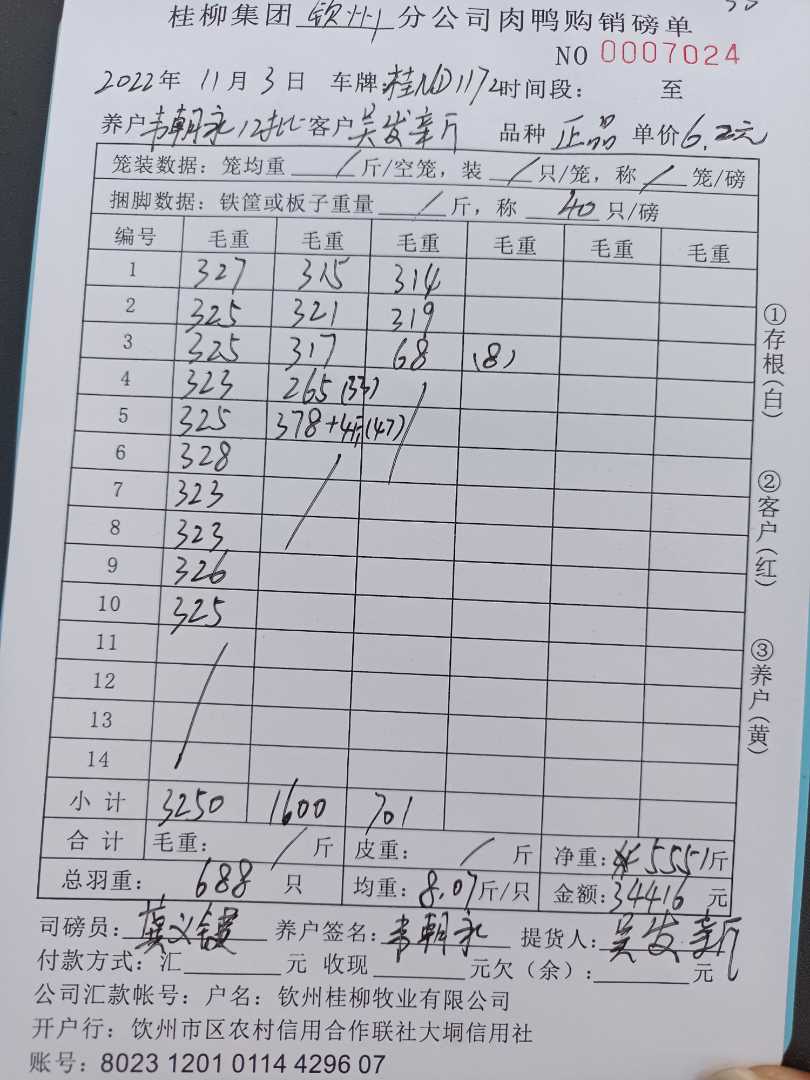 桂柳集团 钦州 分公司肉鸭购销磅单
NO 0007024
2022年 11月 3日 车牌:桂ND1172 时间段: 至
养户 韦朝永 12批 客户 吴发新 品种 正品 单价 6.2元
笼装数据:笼均重 / 斤/空笼,装 / 只/笼,称 / 笼/磅
捆脚数据:铁筐或板子重量 / 斤,称 40 只/磅
编号 毛重 毛重 毛重 毛重 毛重 毛重
1 327 315 314
2 325 321 319
3 325 317 68 (8)
4 323 265 (33) /
5 325 378+4斤(47)
6 328 /
7 323
8 323
9 326
10 325
11 /
12
13
14
小计 3250 1600 701
合计 毛重: / 斤 皮重: / 斤 净重: 5551斤
总羽重: 688 只 均重: 8.07斤/只 金额: 34416 元
司磅员: 养户签名: 韦朝永 提货人: 吴发新
付款方式:汇 元 收现 元欠(余): 元
公司汇款帐号:户名:钦州桂柳牧业有限公司
开户行:钦州市区农村信用合作联社大垌信用社
账号:8023 1201 0114 4296 07
①存根(白)
②客户(红)
③养户(黄)